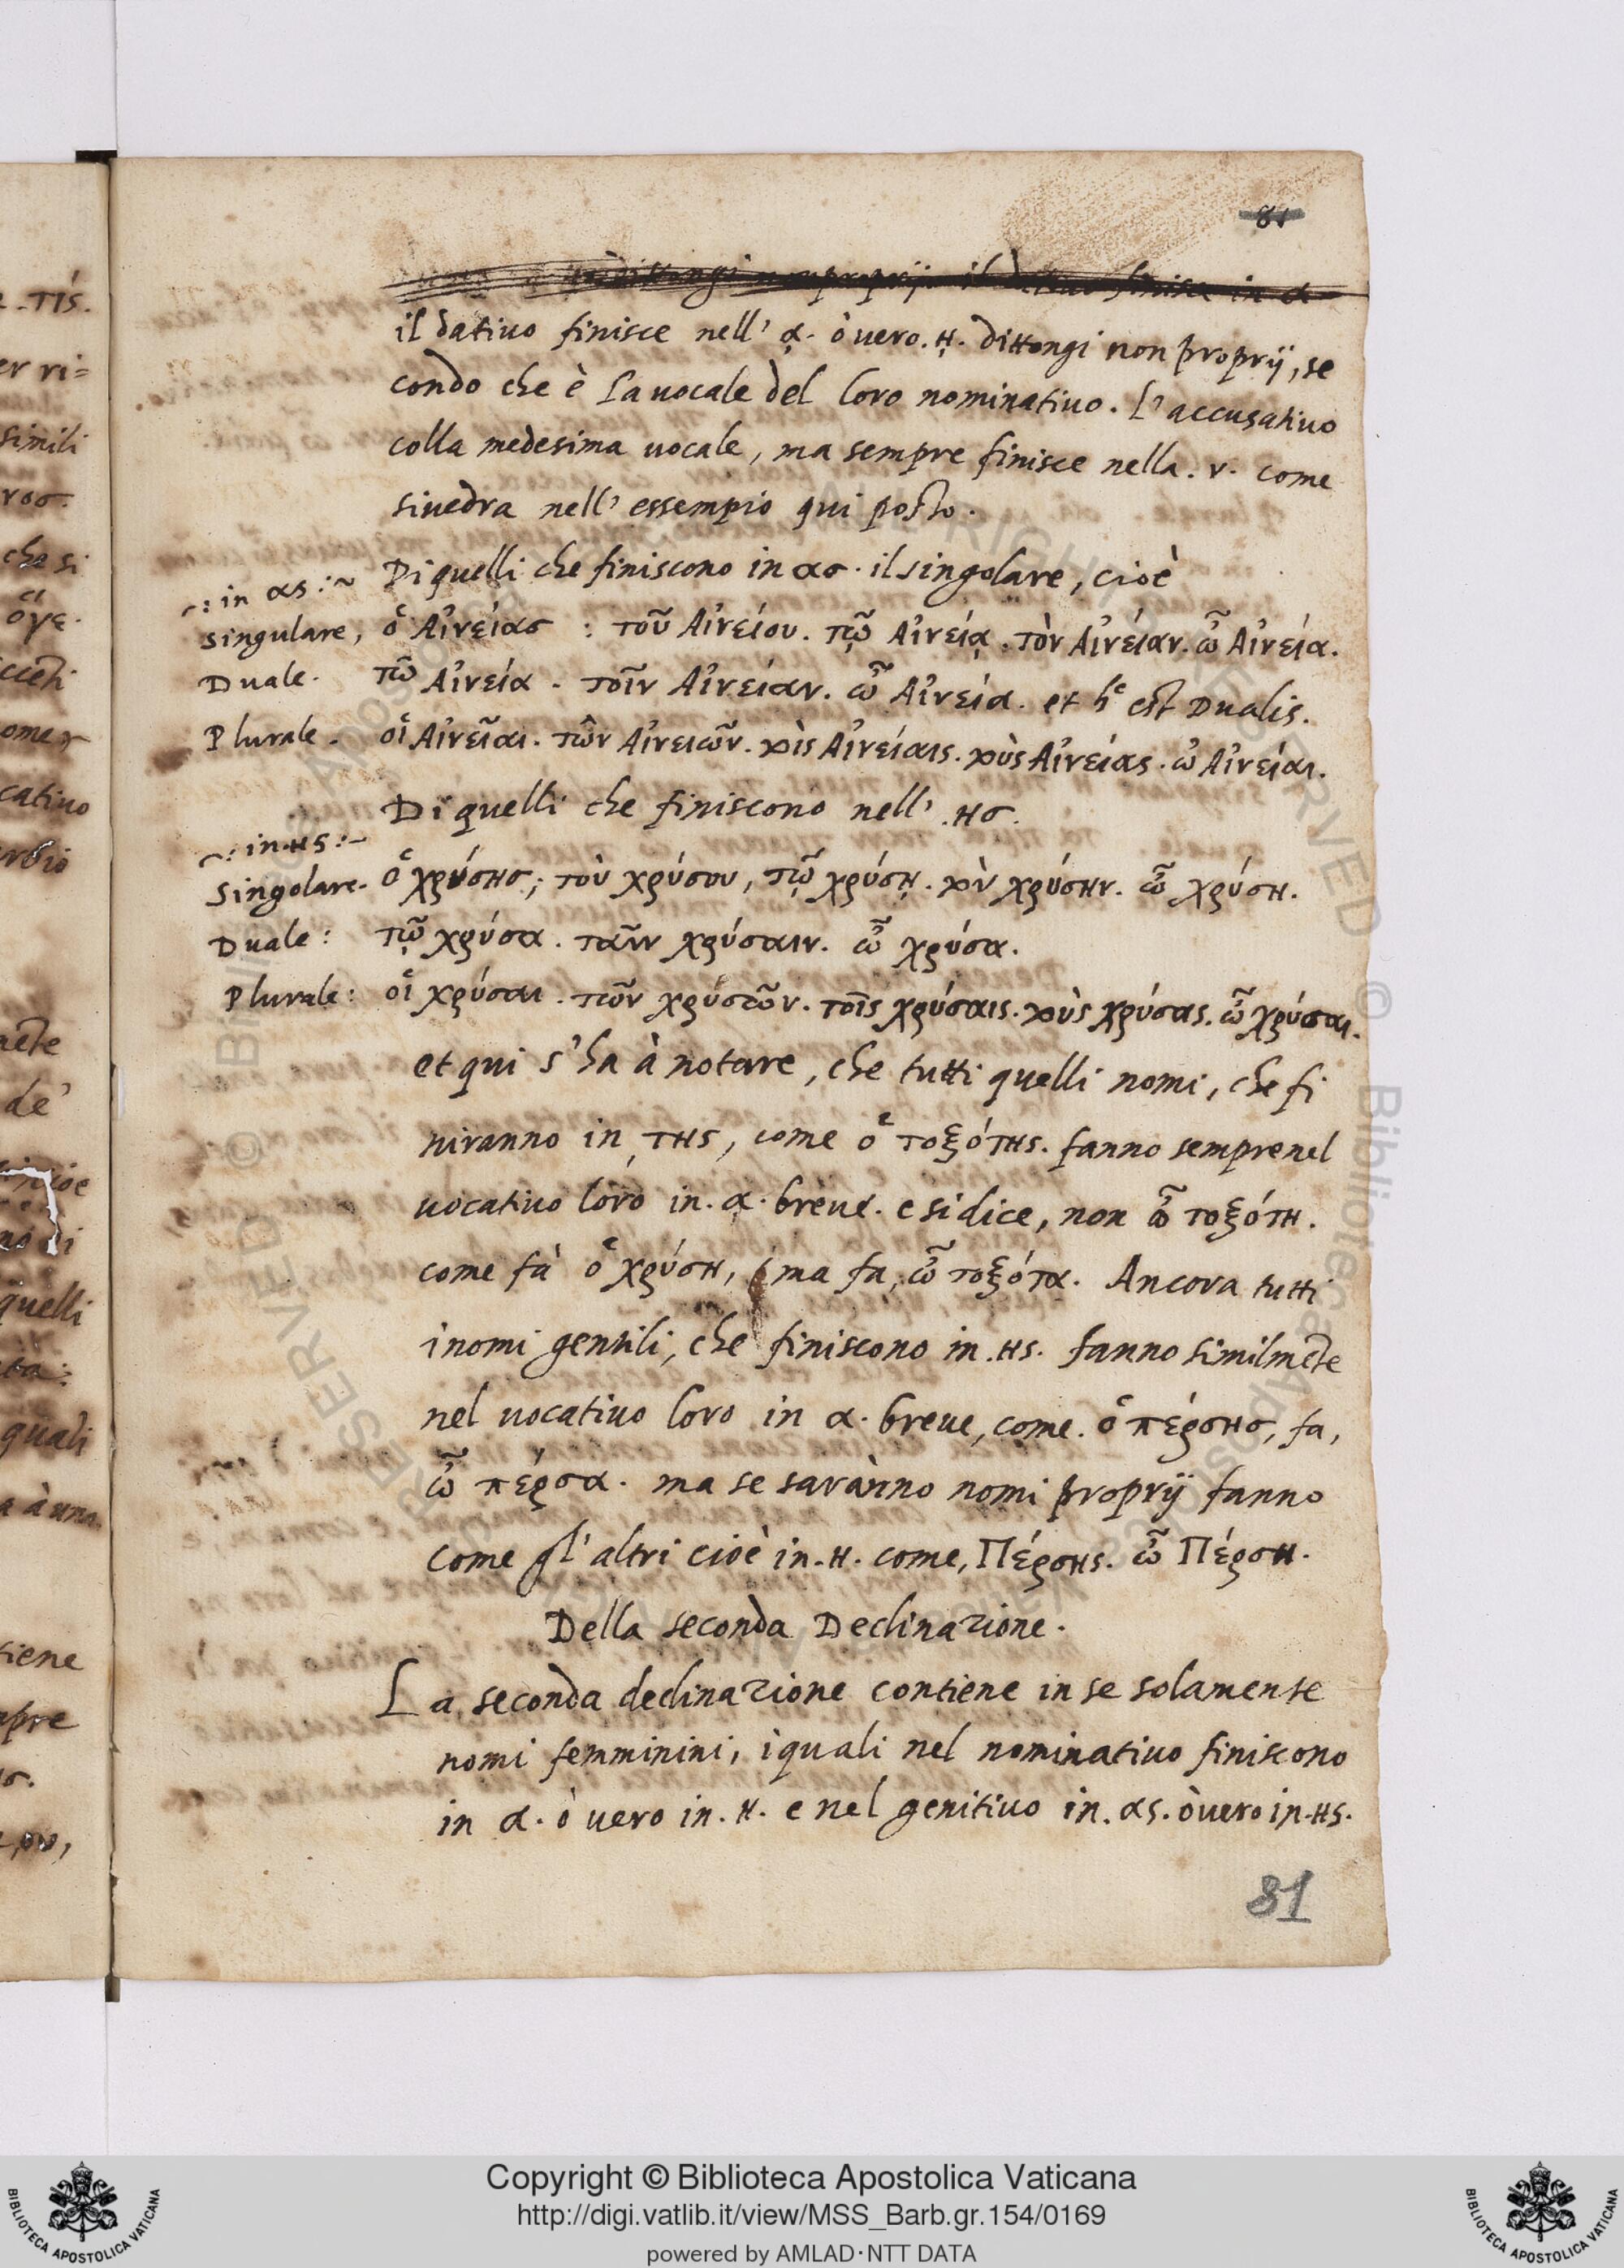 81
dittongi non proprij il dativo finisce in α
il datiuo finisce nell' ᾳ. ò uero. ῃ. dittongi non proprij, se
condo che è la uocale del loro nominatiuo. L'accusatiuo
colla medesima uocale, ma sempre finisce nella. ν. come
siuedra nell' essempio qui posto.
Di quelli che finiscono in ασ. il singolare, cioè
in ας
singulare, ὁ Αἰνείασ : τοῦ Αἰνείου. τῷ Αἰνείᾳ. τὸν Αἰνείαν. ὦ Αἰνεία.
Duale. τῶ Αἰνεία. τοῖν Αἰνείαν. ὦ Αἰνεία. et h^c est Dualis.
Plurale. οἱ Αἰνεῖαι. τῶν Αἰνειῶν. τοὶς Αἰνείαις. τοὺς Αἰνείας. ὦ Αἰνείαι.
Di quelli che finiscono nell' .ησ.
in.ης
Singolare. ὁ χρύσησ; τοὺ χρύσου, τῷ χρύσῃ. τὸν χρύσην. ὦ χρύση.
Duale: τῷ χρύσα. ταῖν χρύσαιν. ὦ χρύσα.
Plurale: οἱ χρύσαι. τῶν χρυσῶν. τοῖς χρύσαις. τοὺς χρύσας. ὦ χρύσαι.
et qui s'ha à notare, che tutti quelli nomi, che fi
niranno in, της, come ὁ τοξότης. fanno semprenel
uocatiuo loro in. α. breue. e si dice, non ὦ τοξότη.
come fà ὁ χρύση, ma fa, ὦ τοξότα. Ancora tutti
i nomi gentili, che finiscono in .ης. fanno similmēte
nel uocatiuo loro in α. breue, come. ὁ πέρσησ, fa,
ὦ πέρσα. ma se sarànno nomi proprij fanno
come gl' altri cioè in. η. come, Πέρσης. ὦ Πέρση.
Della seconda Declinazione.
La seconda declinazione contiene in se solamente
nomi femminini, iquali nel nominatiuo finiscono
in α. ò uero in. η. e nel genitiuo in. ας. òuero in. ης.
81
Copyright © Biblioteca Apostolica Vaticana
http://digi.vatlib.it/view/MSS_Barb.gr.154/0169
powered by AMLAD·NTT DATA
BIBLIOTECA APOSTOLICA VATICANA
BIBLIOTECA APOSTOLICA VATICANA